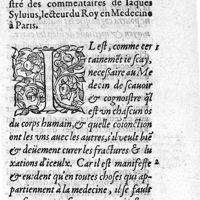 stré des commentaires de Iaques
Syluius, lecteur du Roy en Medecine
à Paris.
IL est, comme cer
tainemēt ie scay,
necessaire au Me
decin de scauoir
& cognoistre q̄l
est vn chascun os
du corps humain, & quelle coionction
ont les vns auec les autres, si il veult biē
& deüement curer les fractures & lu
xations d'iceulx. Car il est manifeste
& euident qu'en toutes choses qui ap-
partiennent à la medecine, il se fault